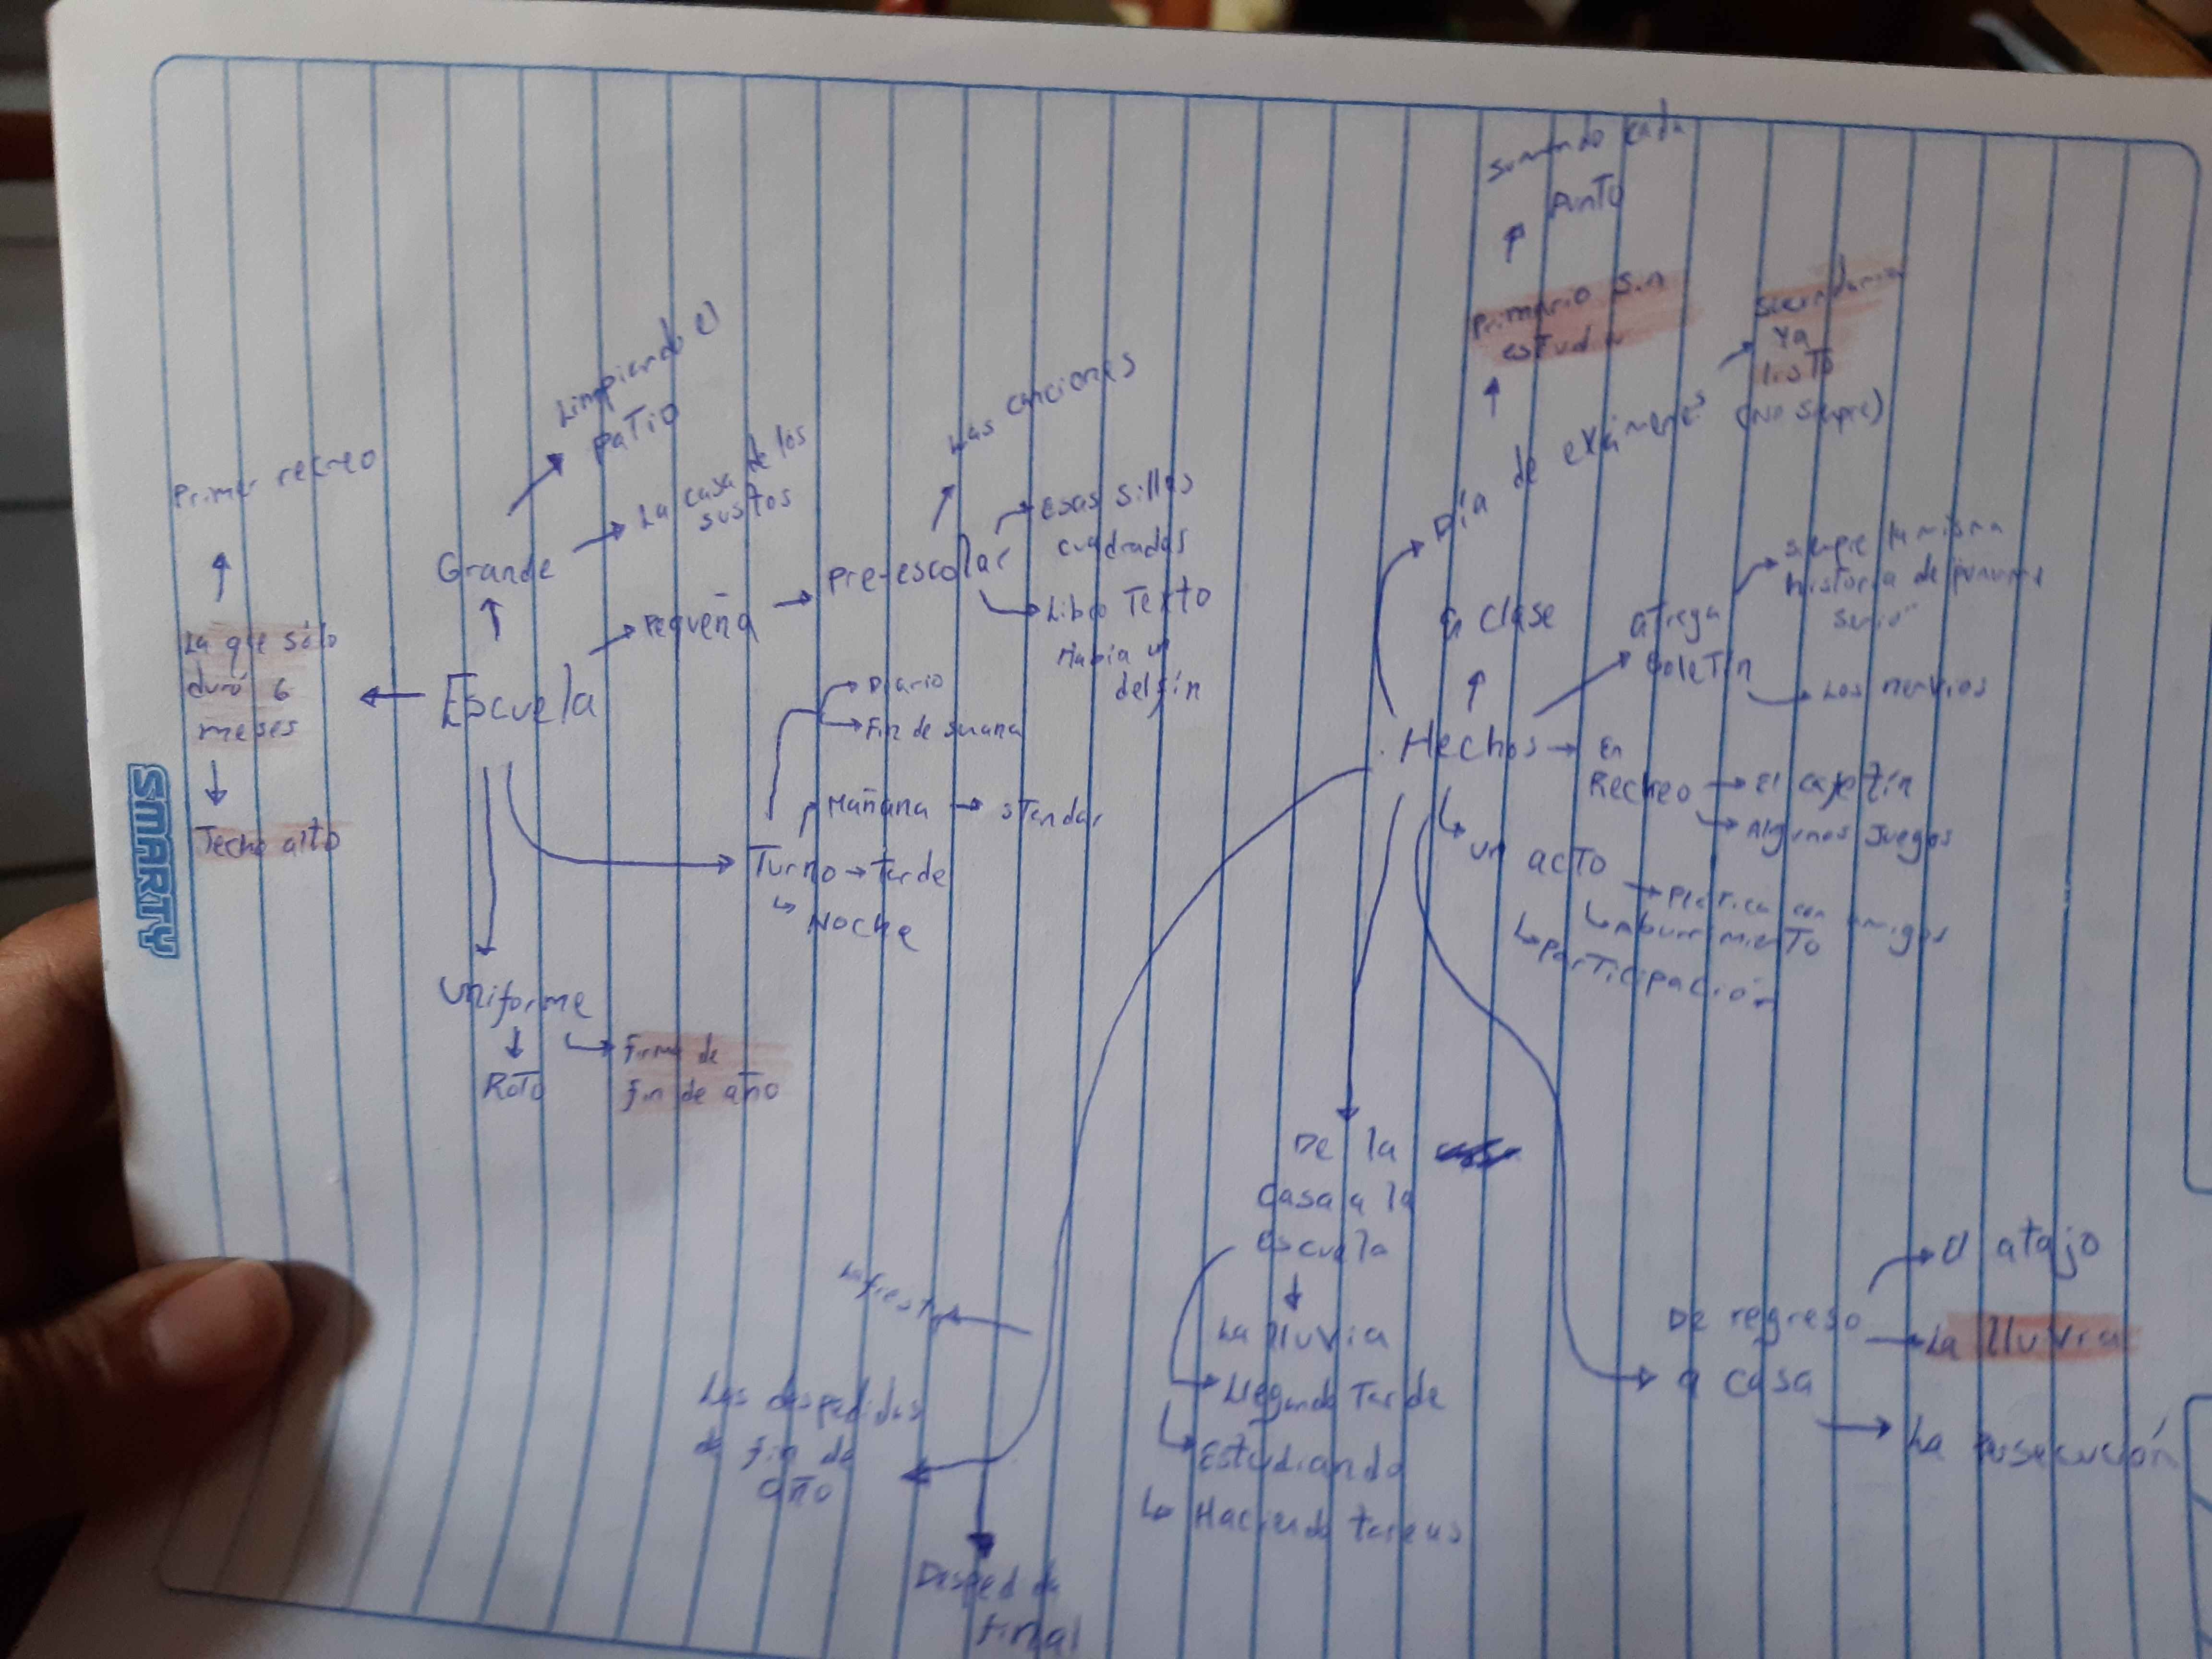 Primer recreo
La que sólo
duró 6
meses
Techo alto
SMARTY
Limpiando el
patio
La casa de los
sustos
Grande
Escuela
Pequeña
Pre-escolar
Las canciones
Esas sillas
cuadradas
Libro Texto
Había un
delfín
Diario
Fin de smana
Mañana
standar
Turno
Tarde
Noche
Uniforme
Roto
Firma de
fin de año
Sumando cada
punto
Primario sin
estudiar
Secundaria
Ya
listo
(No siempre)
Día de exámenes
a clase
boletín
siempre la misma
historia de
Los nervios
Hechos
En
Recreo
El cafetín
Algunos juegos
un acto
Platica con amigos
aburrimiento
participación
De la
Casa a la
escuela
La lluvia
Llegando tarde
Estudiando
Haciendo tareas
De regreso
a casa
El atajo
La lluvia
La persecución
La fiesta
Las despedidas
de fin de
año
Despedida
final